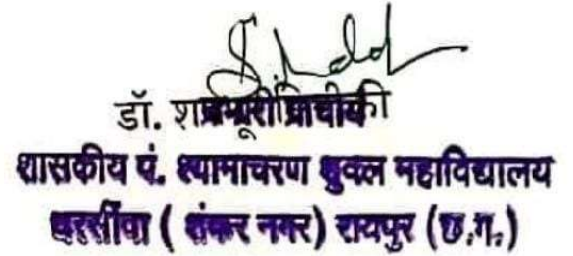 डॉ.
प्रभारी प्राचार्य
शासकीय पं. श्यामाचरण शुक्ल महाविद्यालय
धरसींवा ( शंकर नगर) रायपुर (छ.ग.)